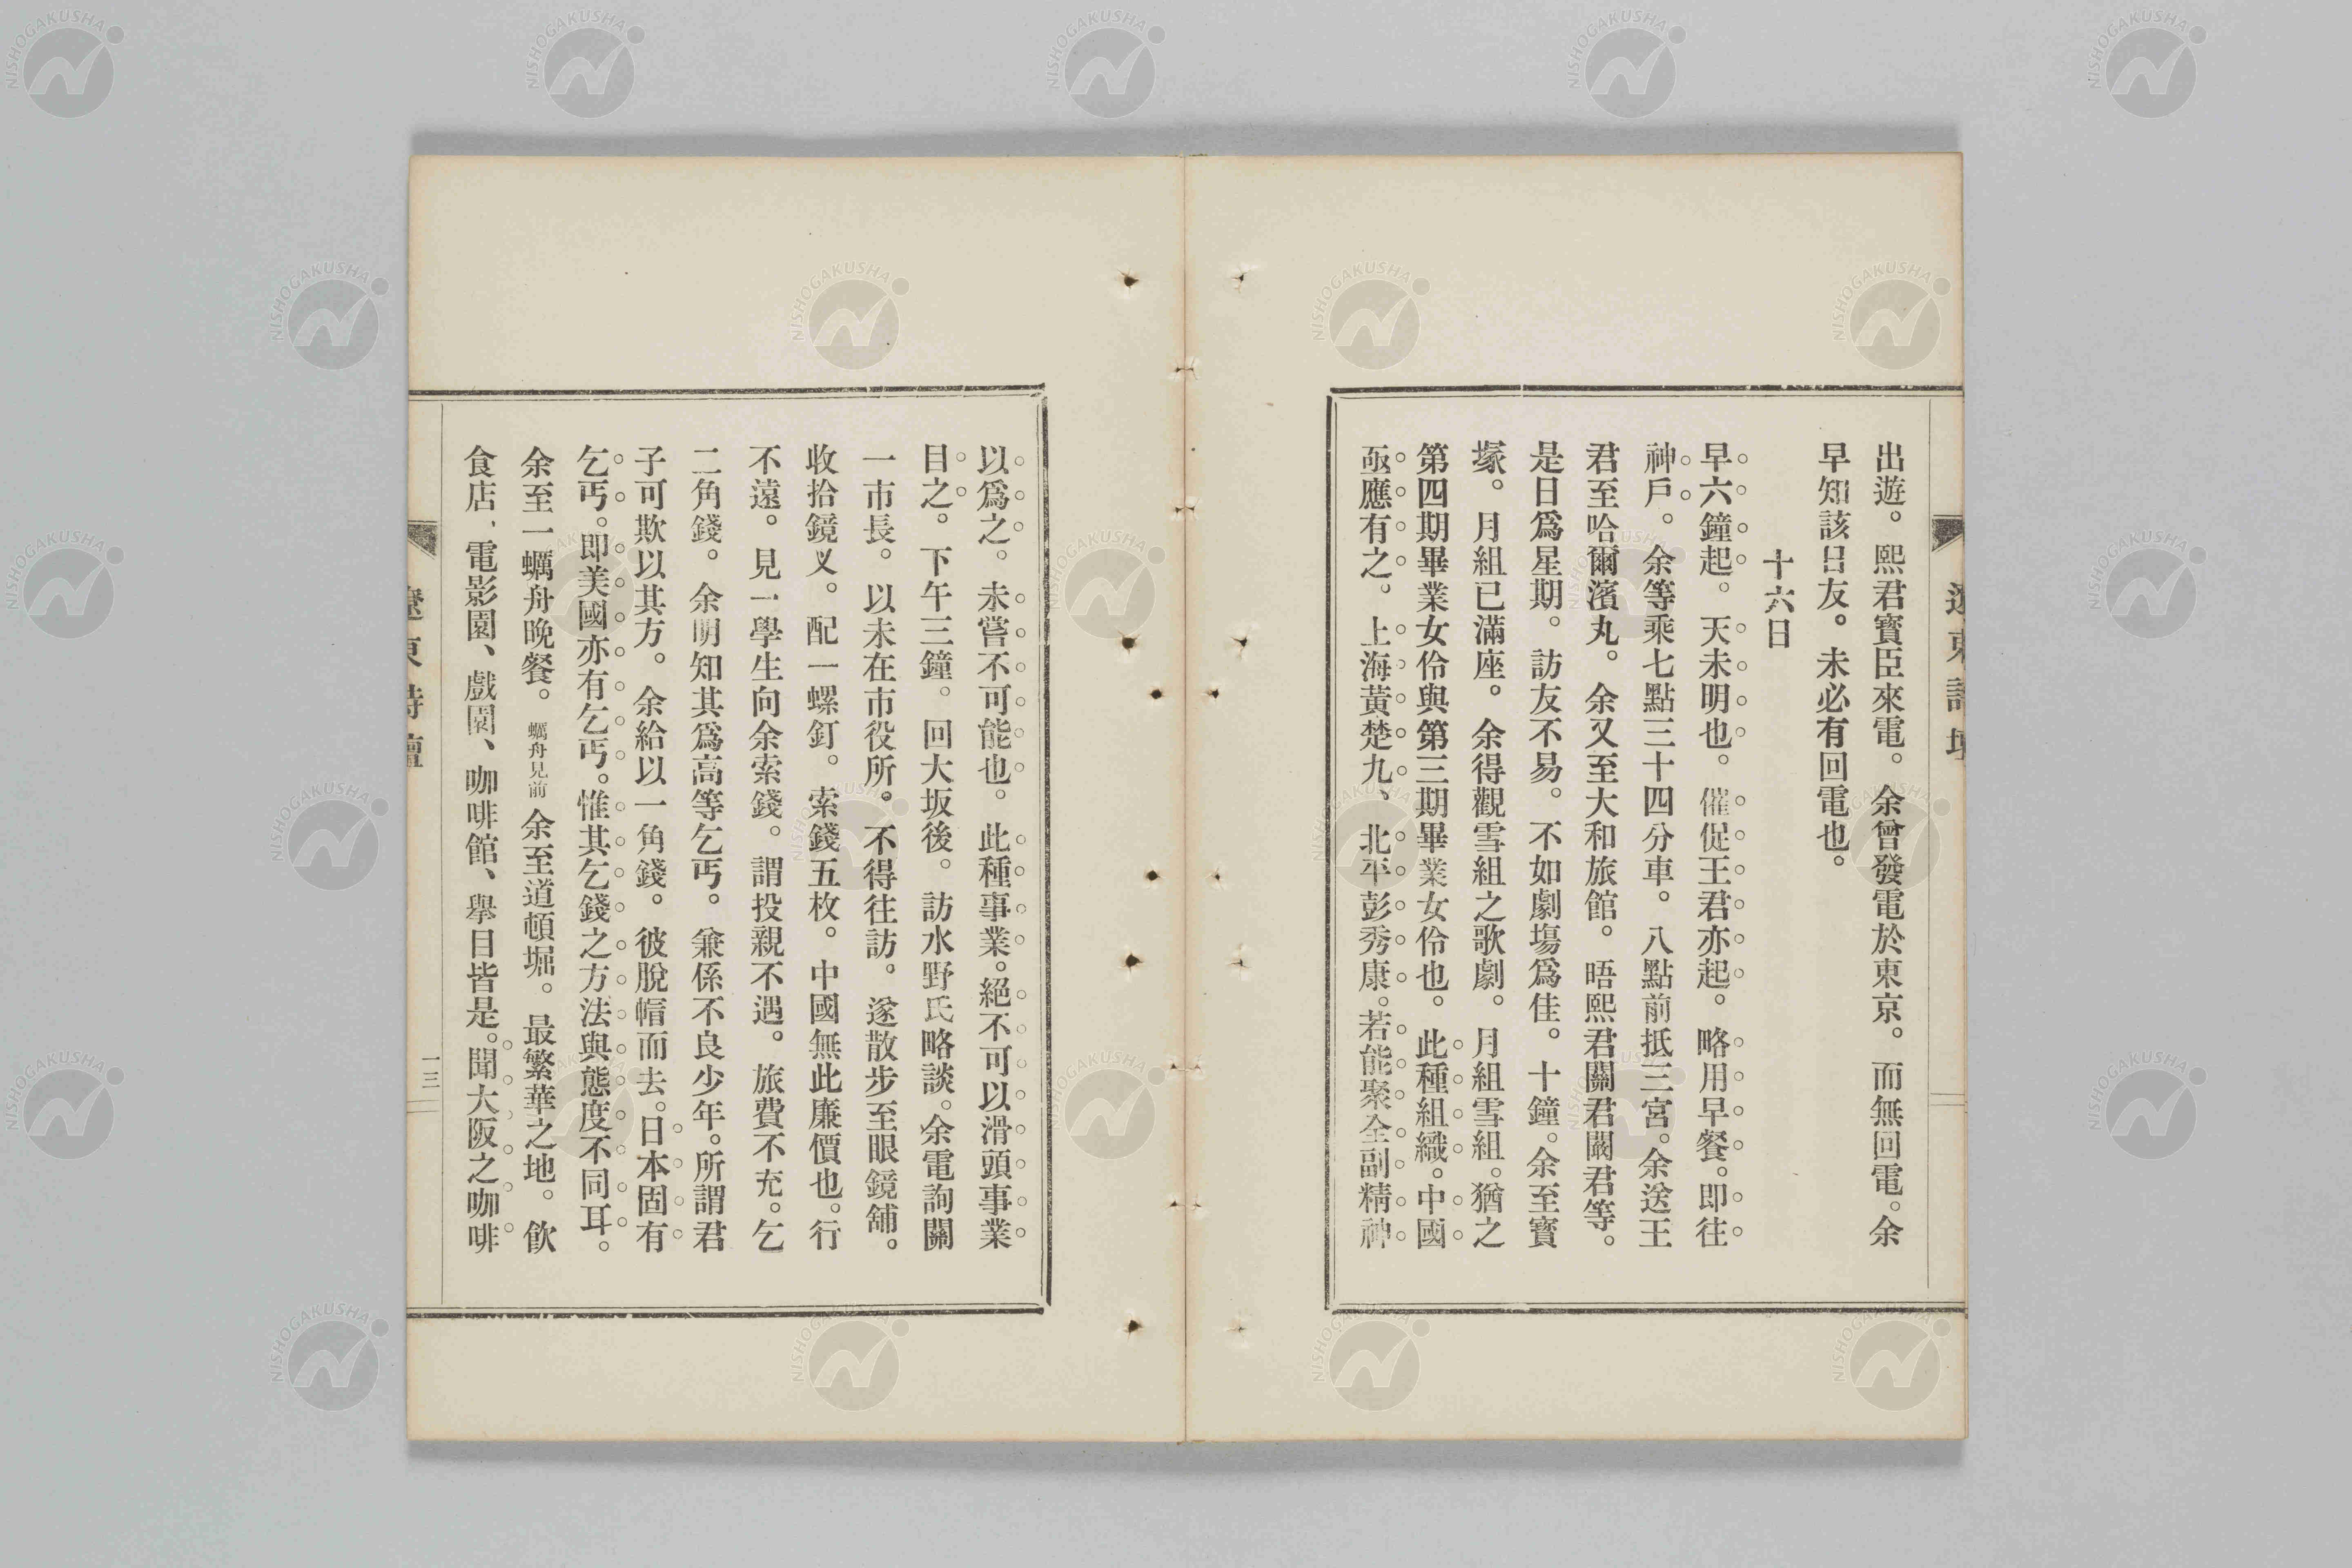 出遊。熙君寳臣來電。余曾發電於東京。而無回電。余
早知該日友。未必有回電也。
十六日
早六鐘起。天未明也。催促王君亦起。略用早餐。即往
神戶。余等乘七點三十四分車。八點前抵三宮。余送王
君至哈爾濱丸。余又至大和旅館。晤熙君關君闞君等。
是日爲星期。訪友不易。不如劇塲爲佳。十鐘。余至寳
塚。月組已滿座。余得觀雪組之歌劇。月組雪組。猶之
第四期畢業女伶與第三期畢業女伶也。此種組織。中國
亟應有之。上海黃楚九、北平彭秀康。若能聚全副精神
以爲之。未嘗不可能也。此種事業。絕不可以滑頭事業
目之。下午三鐘。回大坂後。訪水野氏略談。余電詢關
一市長。以未在市役所。不得往訪。遂散步至眼鏡舖。
收拾鏡叉。配一螺釘。索錢五枚。中國無此廉價也。行
不遠。見一學生向余索錢。謂投親不遇。旅費不充。乞
二角錢。余明知其爲高等乞丐。兼係不良少年。所謂君
子可欺以其方。余給以一角錢。彼脫帽而去。日本固有
乞丐。即美國亦有乞丐。惟其乞錢之方法與態度不同耳。
余至一蠣舟晚餐。蠣舟見前余至道頓堀。最繁華之地。飲
食店、電影園、戲園、咖啡館、舉目皆是。聞大阪之咖啡
遼東詩壇
一三
NISHOGAKUSHA